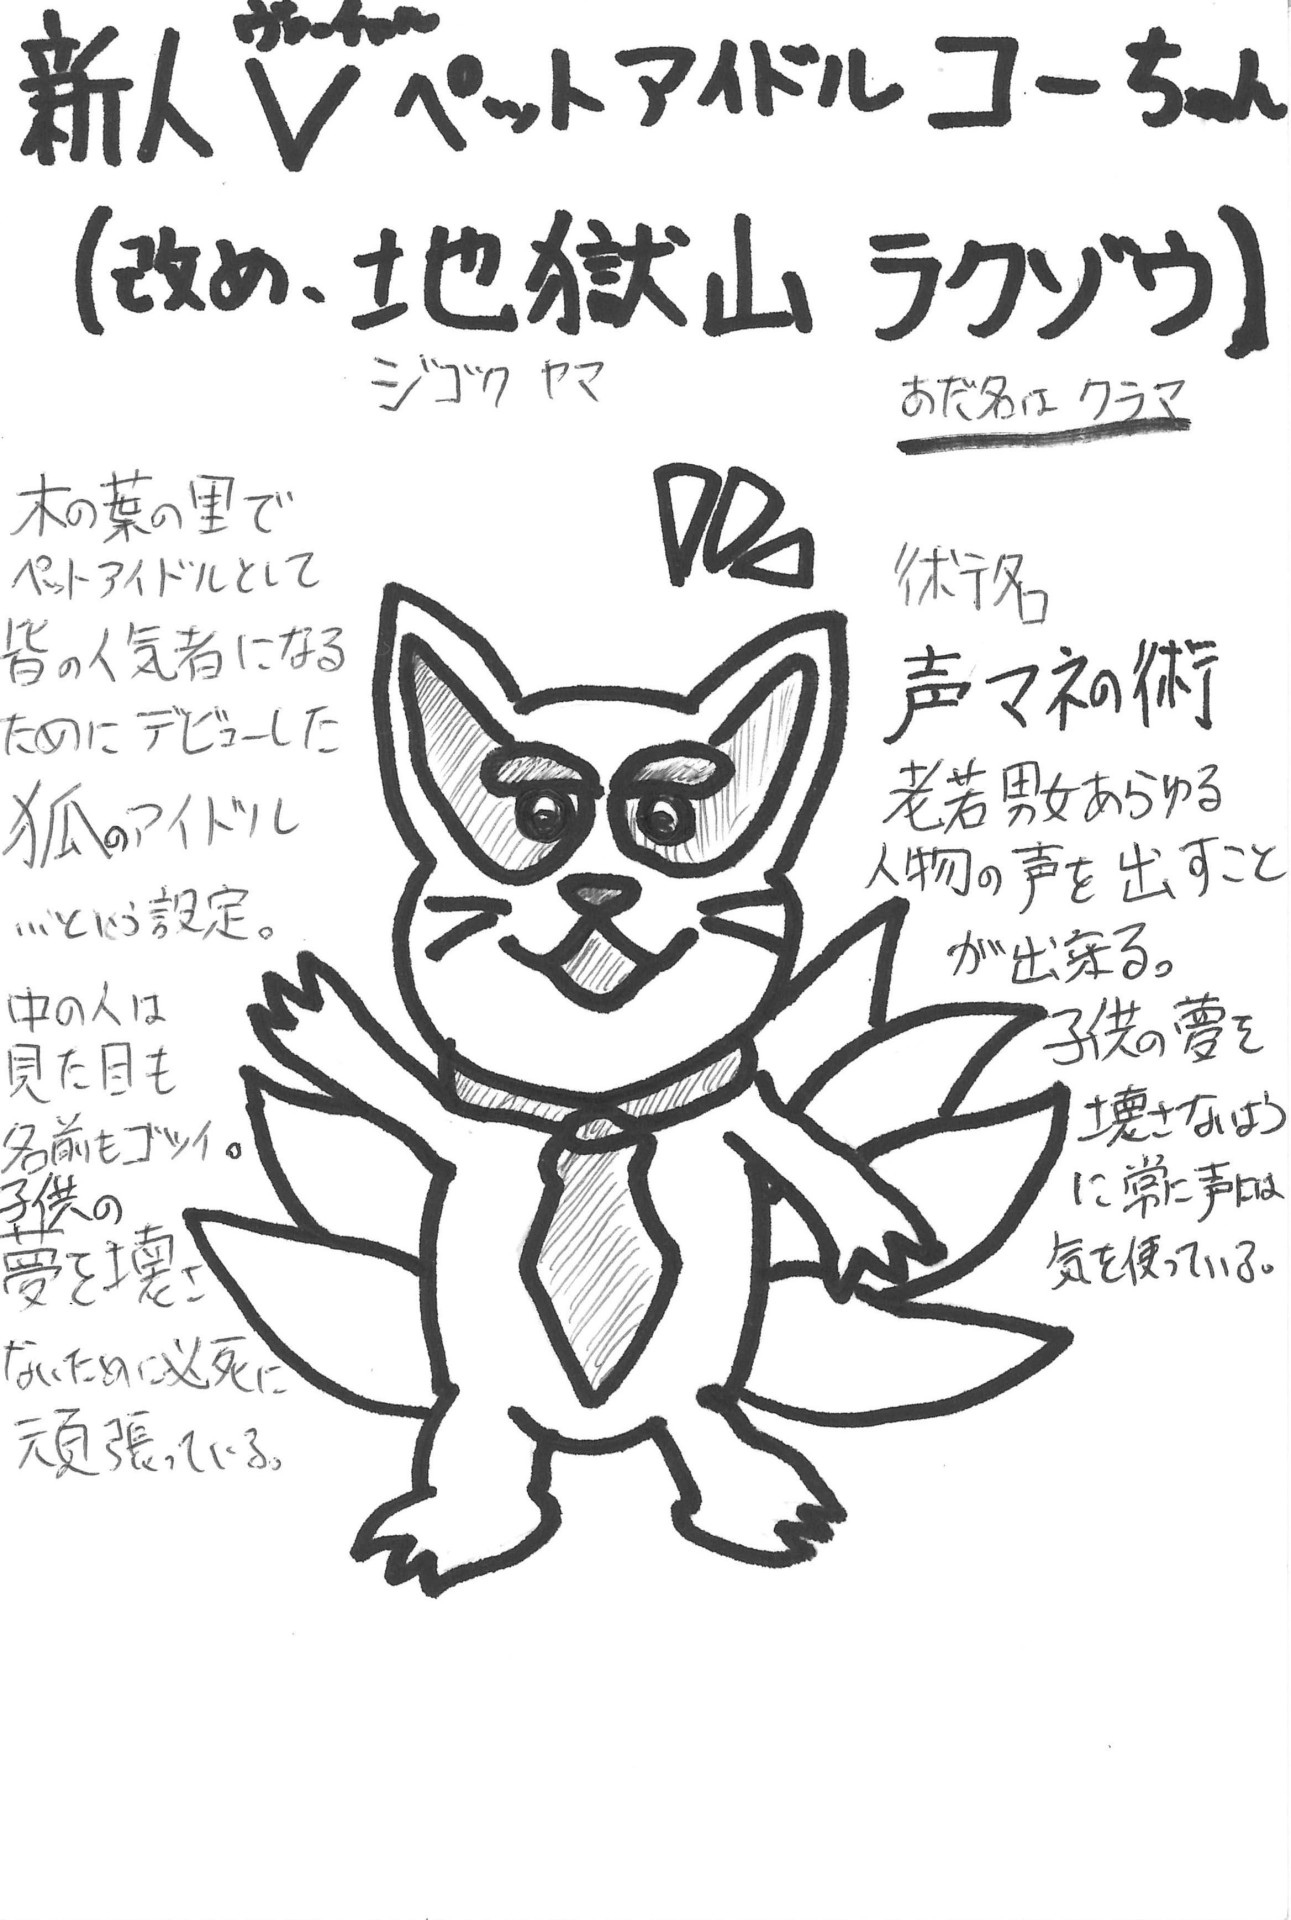 ヴァーチャル
新人 V ペットアイドル コーちゃん
(改め、地獄山 ラクゾウ)
ジゴク ヤマ
あだ名は クラマ
木の葉の里で
ペットアイドルとして
皆の人気者になる
ために デビューした
狐のアイドル
…という設定。
中の人は
見た目も
名前もゴツイ。
子供の
夢を壊さ
ないために必死に
頑張っている。
術名
声マネの術
老若男女あらゆる
人物の声を出すこと
が出来る。
子供の夢を
壊さないよう
に常に声には
気を使っている。